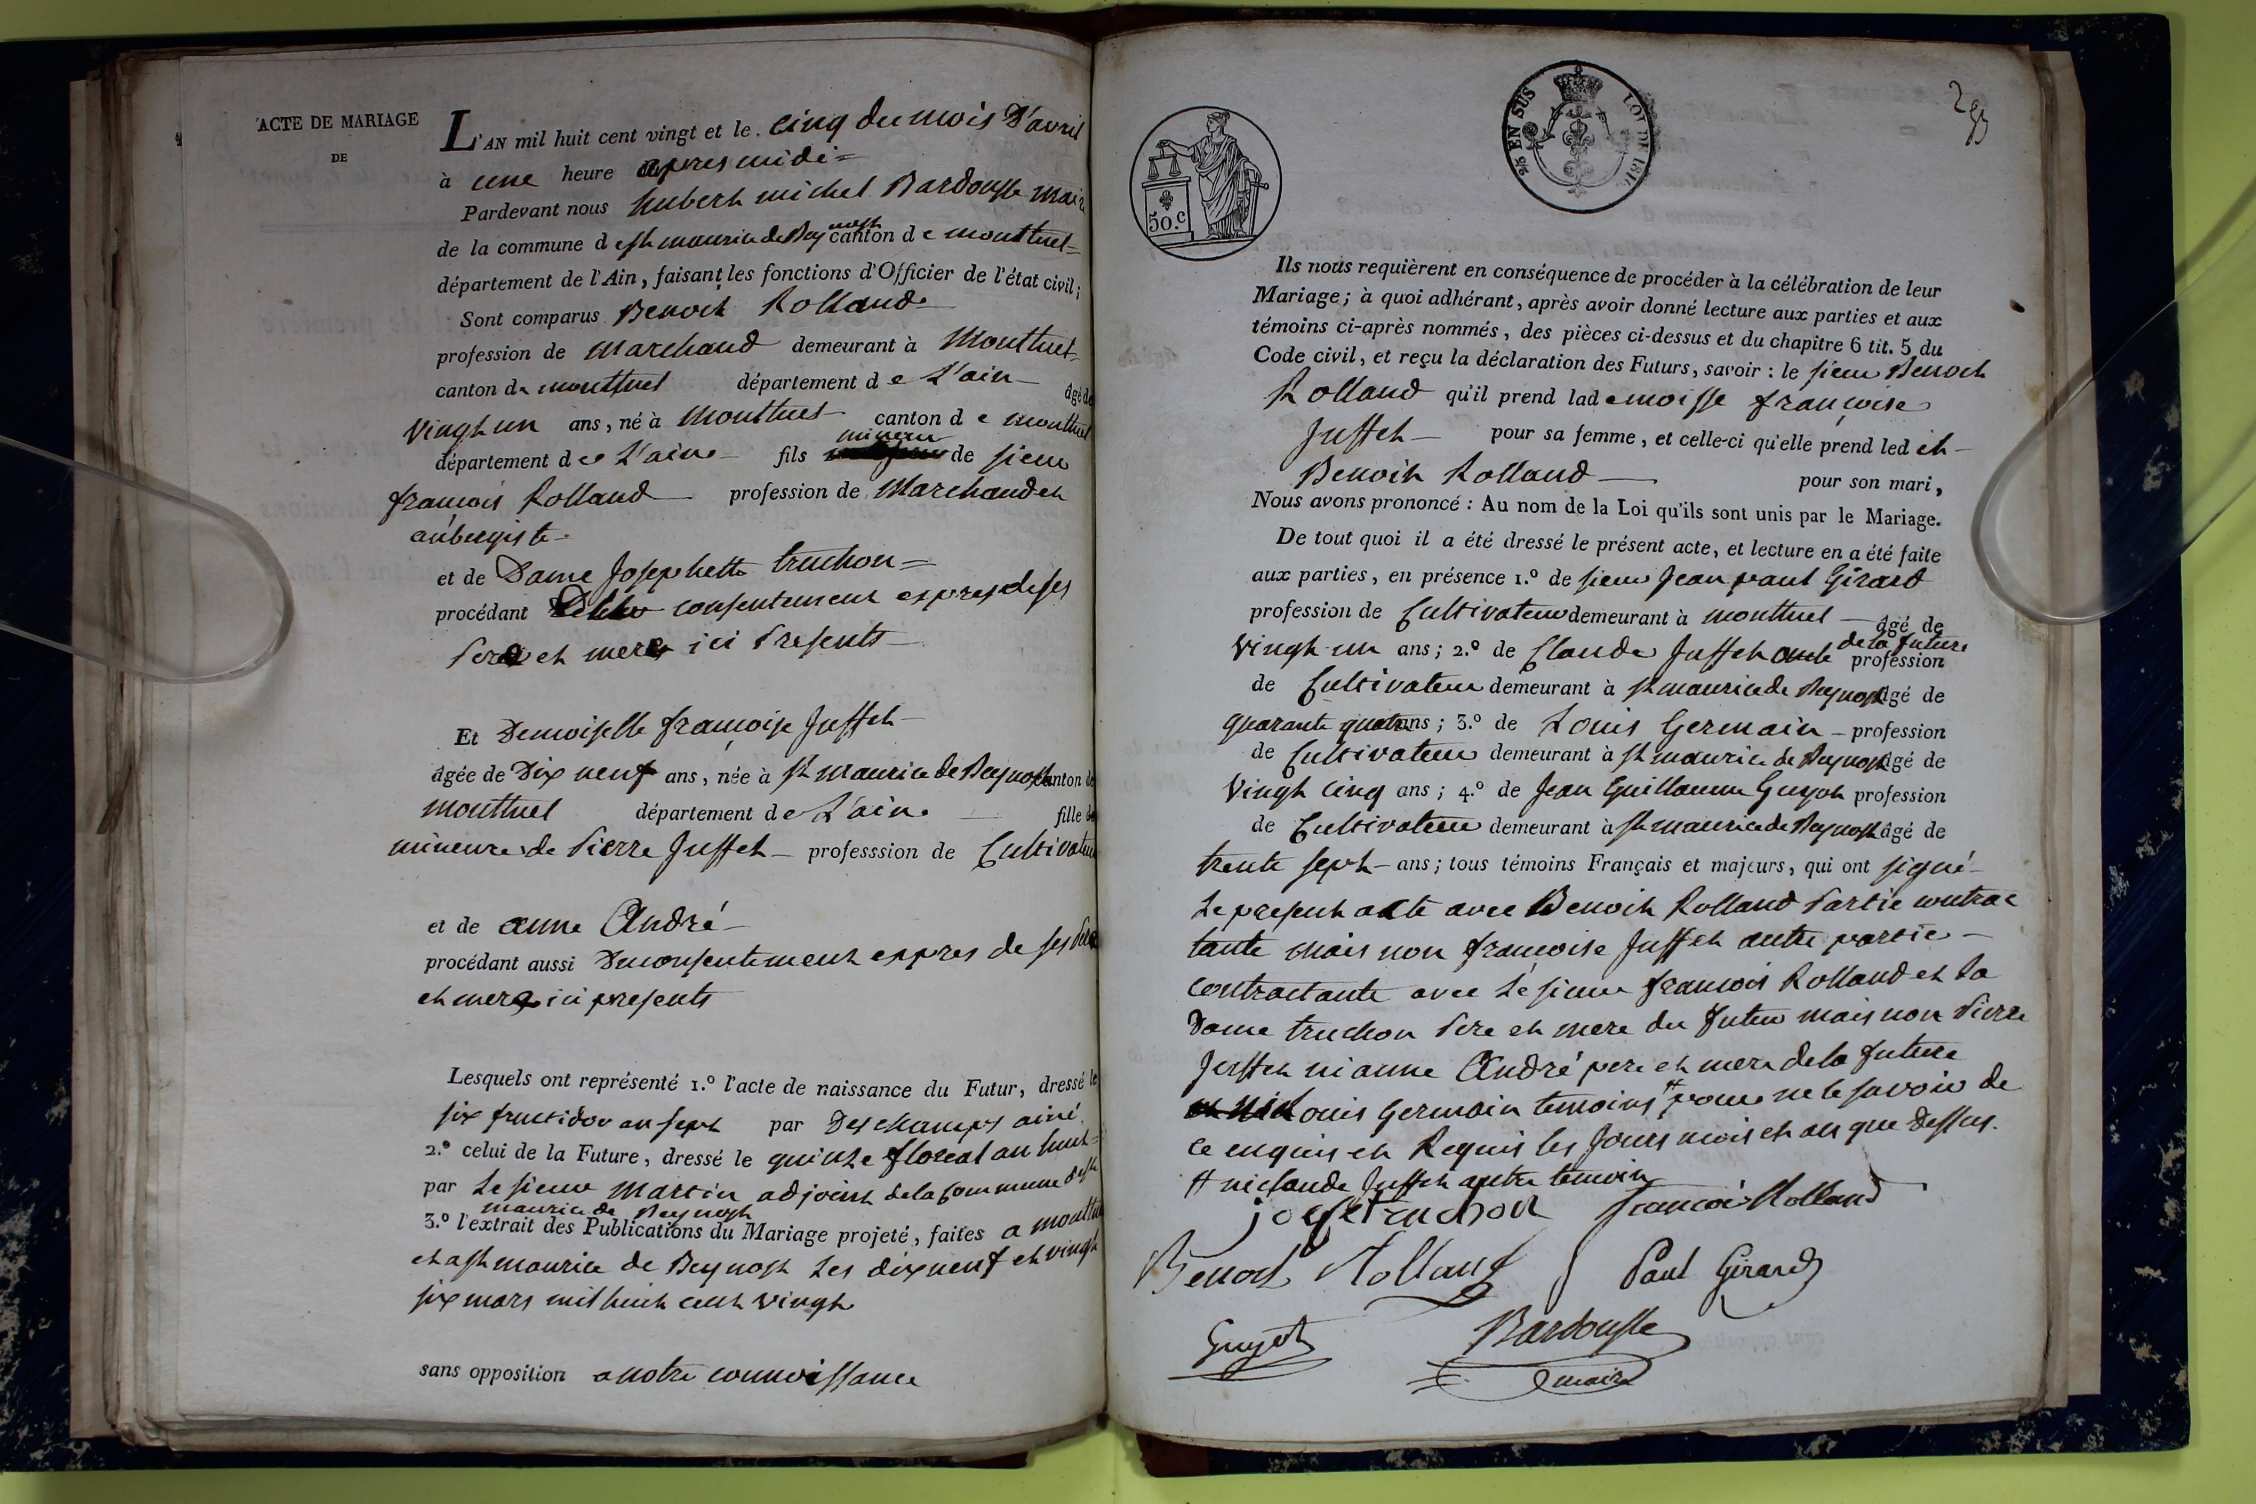 ACTE DE MARIAGE
DE
L'AN mil huit cent vingt et le cinq du mois D'avril
à une heure apres midi =
Pardevant nous hubert michel Bardousse maire
de la commune de st maurice de Beynost canton de montluel =
département de l'Ain, faisant les fonctions d'Officier de l'état civil;
Sont comparus Benoit Rolland
profession de marchand demeurant à Montluel
canton de montluel département de L'ain âgé de
vingt un ans, né à Montluel canton de montluel
département de L'ain fils mineur de sieur
françois Rolland profession de Marchand et
aubergiste
et de Dame Josephette truchon =
procédant consentement expres de ses
Pere et mere ici Presents
Et Demoiselle françoise Juffet
âgée de Dix neuf ans, née à st maurice de Beynost canton de
montluel département de L'ain fille
mineure de Pierre Juffet professsion de Cultivateur
et de anne André
procédant aussi Du consentement expres de ses Pere
et mere ici presents
Lesquels ont représenté 1.º l'acte de naissance du Futur, dressé le
six fructidor an sept par Deschamps ainé
2.º celui de la Future, dressé le quinze floreal an huit =
par Le sieur Martin adjoint de la Commune de st
maurice de Beynost
3.º l'extrait des Publications du Mariage projeté, faites a montluel
et a st maurice de Beynost Les dix neuf et vingt
six mars mil huit cent vingt
sans opposition a notre connoissance
50.c
EN SUS
LOI DE 1816
Ils nous requièrent en conséquence de procéder à la célébration de leur
Mariage; à quoi adhérant, après avoir donné lecture aux parties et aux
témoins ci-après nommés, des pièces ci-dessus et du chapitre 6 tit. 5 du
Code civil, et reçu la déclaration des Futurs, savoir : le sieur Benoit
Rolland qu'il prend lademoisse françoise
Juffet pour sa femme, et celle-ci qu'elle prend ledit
Benoit Rolland pour son mari,
Nous avons prononcé : Au nom de la Loi qu'ils sont unis par le Mariage.
De tout quoi il a été dressé le présent acte, et lecture en a été faite
aux parties, en présence 1.º de sieur Jean paul Girard
profession de Cultivateur demeurant à montluel âgé de
vingt un ans; 2.º de Claude Juffet oncle de la future profession
de Cultivateur demeurant à st maurice de Beynost âgé de
quarante quatre ans; 3.º de Louis Germain profession
de Cultivateur demeurant à st maurice de Beynost âgé de
vingt cinq ans; 4.º de Jean Guillaume Guyot profession
de Cultivateur demeurant à st maurice de Beynost âgé de
trente sept ans; tous témoins Français et majeurs, qui ont signé
Le present acte avec Benoit Rolland Partie contrac
tante mais non françoise Juffet autre partie
contractante avec Le sieur francois Rolland et La
Dame truchon Pere et mere du futur mais non Pierre
Juffet ni anne André pere et mere de la future
Louis Germain temoins # pour ne le savoir de
ce enquis et Requis les Jours mois et an que dessus.
# ni claude Juffet autre temoin
josete truchon francois Rolland
Benoit Rolland Paul Girard
Guyot Bardousse
maire